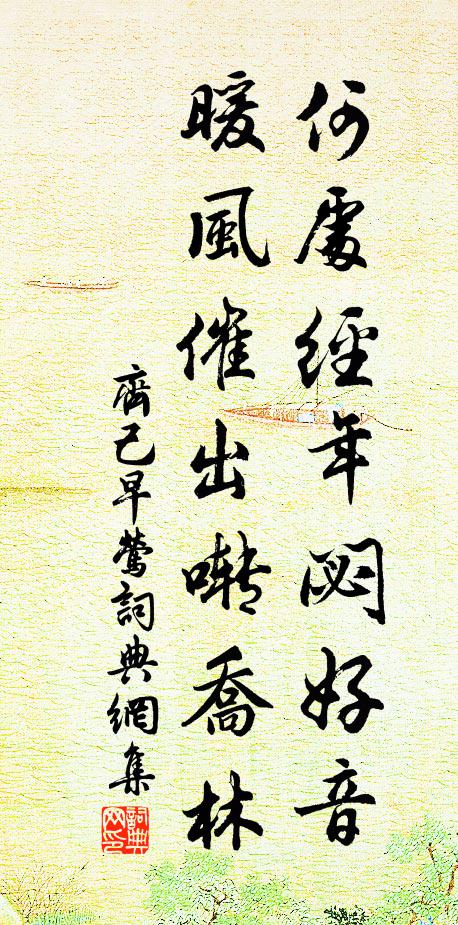 何處經年閟好音
暖風催出囀喬林
齊己早鶯詞典網集
詞典網印